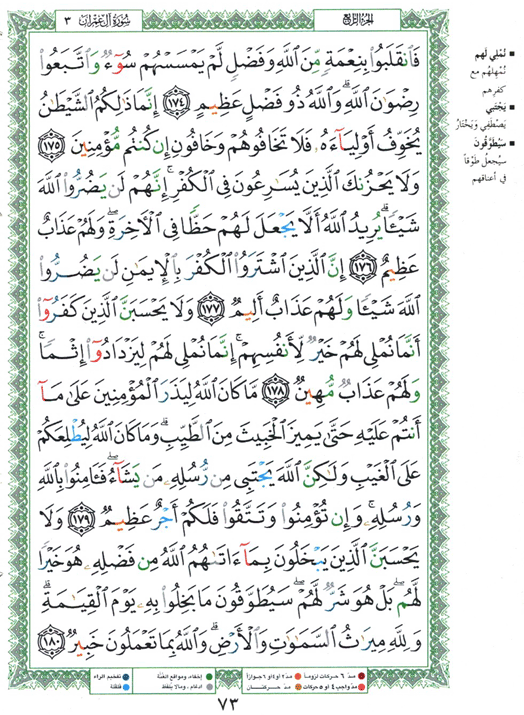 سُورَةُ آلِ عِمْرَانَ ٣
الجزء الرابع
فَٱنقَلَبُوا۟ بِنِعْمَةٍ مِّنَ ٱللَّهِ وَفَضْلٍ لَّمْ يَمْسَسْهُمْ سُوٓءٌ وَٱتَّبَعُوا۟
رِضْوَٰنَ ٱللَّهِ ۗ وَٱللَّهُ ذُو فَضْلٍ عَظِيمٍ ١٧٤ إِنَّمَا ذَٰلِكُمُ ٱلشَّيْطَٰنُ
يُخَوِّفُ أَوْلِيَآءَهُۥ فَلَا تَخَافُوهُمْ وَخَافُونِ إِن كُنتُم مُّؤْمِنِينَ ١٧٥
وَلَا يَحْزُنكَ ٱلَّذِينَ يُسَٰرِعُونَ فِى ٱلْكُفْرِ ۚ إِنَّهُمْ لَن يَضُرُّوا۟ ٱللَّهَ
شَيْـًٔا ۗ يُرِيدُ ٱللَّهُ أَلَّا يَجْعَلَ لَهُمْ حَظًّا فِى ٱلْـَٔاخِرَةِ ۖ وَلَهُمْ عَذَابٌ
عَظِيمٌ ١٧٦ إِنَّ ٱلَّذِينَ ٱشْتَرَوُا۟ ٱلْكُفْرَ بِٱلْإِيمَٰنِ لَن يَضُرُّوا۟
ٱللَّهَ شَيْـًٔا وَلَهُمْ عَذَابٌ أَلِيمٌ ١٧٧ وَلَا يَحْسَبَنَّ ٱلَّذِينَ كَفَرُوٓا۟
أَنَّمَا نُمْلِى لَهُمْ خَيْرٌ لِّأَنفُسِهِمْ ۚ إِنَّمَا نُمْلِى لَهُمْ لِيَزْدَادُوٓا۟ إِثْمًا ۚ
وَلَهُمْ عَذَابٌ مُّهِينٌ ١٧٨ مَّا كَانَ ٱللَّهُ لِيَذَرَ ٱلْمُؤْمِنِينَ عَلَىٰ مَآ
أَنتُمْ عَلَيْهِ حَتَّىٰ يَمِيزَ ٱلْخَبِيثَ مِنَ ٱلطَّيِّبِ ۗ وَمَا كَانَ ٱللَّهُ لِيُطْلِعَكُمْ
عَلَى ٱلْغَيْبِ وَلَٰكِنَّ ٱللَّهَ يَجْتَبِى مِن رُّسُلِهِۦ مَن يَشَآءُ ۖ فَـَٔامِنُوا۟ بِٱللَّهِ
وَرُسُلِهِۦ ۚ وَإِن تُؤْمِنُوا۟ وَتَتَّقُوا۟ فَلَكُمْ أَجْرٌ عَظِيمٌ ١٧٩ وَلَا
يَحْسَبَنَّ ٱلَّذِينَ يَبْخَلُونَ بِمَآ ءَاتَىٰهُمُ ٱللَّهُ مِن فَضْلِهِۦ هُوَ خَيْرًا
لَّهُم ۖ بَلْ هُوَ شَرٌّ لَّهُمْ ۖ سَيُطَوَّقُونَ مَا بَخِلُوا۟ بِهِۦ يَوْمَ ٱلْقِيَٰمَةِ ۗ
وَلِلَّهِ مِيرَٰثُ ٱلسَّمَٰوَٰتِ وَٱلْأَرْضِ ۗ وَٱللَّهُ بِمَا تَعْمَلُونَ خَبِيرٌ ١٨٠
نُمْلِي لَهُم
نُمْهِلُهُم مع
كفرهم
يَجْتَبِي
يَصْطَفِي وَيَخْتَارُ
سَيُطَوَّقُونَ
سيُجعل طوقًا
في أعناقهم
مدّ ٦ حركات لزوماً
مدّ ٢ أو ٤ أو ٦ جوازاً
إخفاء، ومواقع الغُنَّة
تفخيم الراء
مدّ واجب ٤ أو ٥ حركات
مدّ حركتان
ادغام، وما لا يُلفظ
قلقلة
٧٣